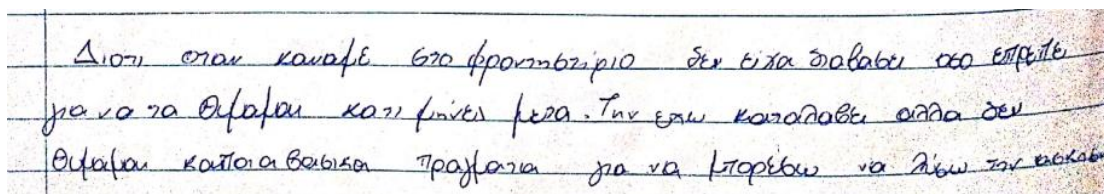 Διοτι οταν καναμε στο φροντηστιριο δεν ειχα διαβασει οσο επρεπε
για να τα θιμαμαι κατι μινες μετα. Την εχω καταλαβει αλλα δεν
θιμαμαι καποια βασικα πραγματα για να μπορεσω να λισω την ασκηση